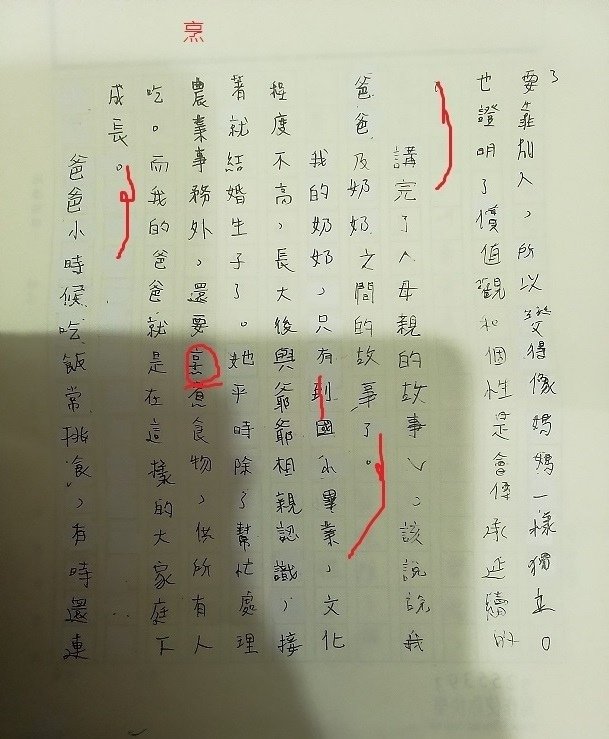 烹
要靠別人，所以變得像媽媽一樣獨立。
也證明了價值觀和個性是會傳承延續的
講完了人母親的故事，該說說我
爸爸及奶奶之間的故事了。
我的奶奶，只有到國小畢業，文化
程度不高，長大後與爺爺相親認識，接
著就結婚生子了。她平時除了幫忙處理
農業事務外，還要烹煮食物，供所有人
吃。而我的爸爸就是在這樣的大家庭下
成長。
爸爸小時候吃飯常挑食，有時還連